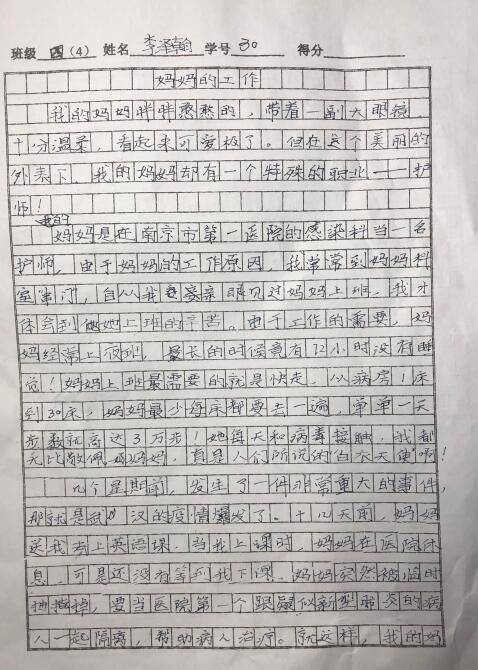 班级 四（4） 姓名 李泽翰 学号 30 得分
妈妈的工作
我的妈妈胖胖憨憨的，带着一副大眼镜，
十分温柔，看起来可爱极了。但在这个美丽的
外表下，我的妈妈却有一个特殊的职业——护
师！
我的
妈妈是在南京市第一医院的感染科当一名
护师，由于妈妈的工作原因，我常常到妈妈科
室串门，自从我亲眼见过妈妈上班，我才
体会到她上班的辛苦。由于工作的需要，妈
妈经常上夜班，最长的时候竟有12小时没有睡
觉！妈妈上班最需要的就是快走，从病房1床
到30床，妈妈最少每床都要去一遍，单单一天
步数就高达3万步！她每天和病毒接触，我都
无比敬佩妈妈，真是人们所说的“白衣天使”啊！
几个星期前，发生了一件非常重大的事件，
那就是武汉的疫情爆发了。十几天前，妈妈
送我去上英语课，当我上课时，妈妈在医院休
息，可是还没有等到我下课，妈妈突然被临时
，要当医院第一个跟疑似新型肺炎的病
人一起隔离，帮助病人治疗。就这样，我的妈